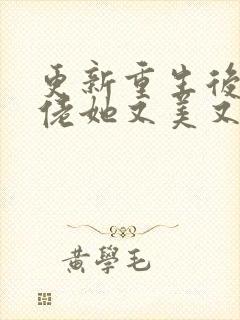 更新重生後
佬她又美又
黃學毛